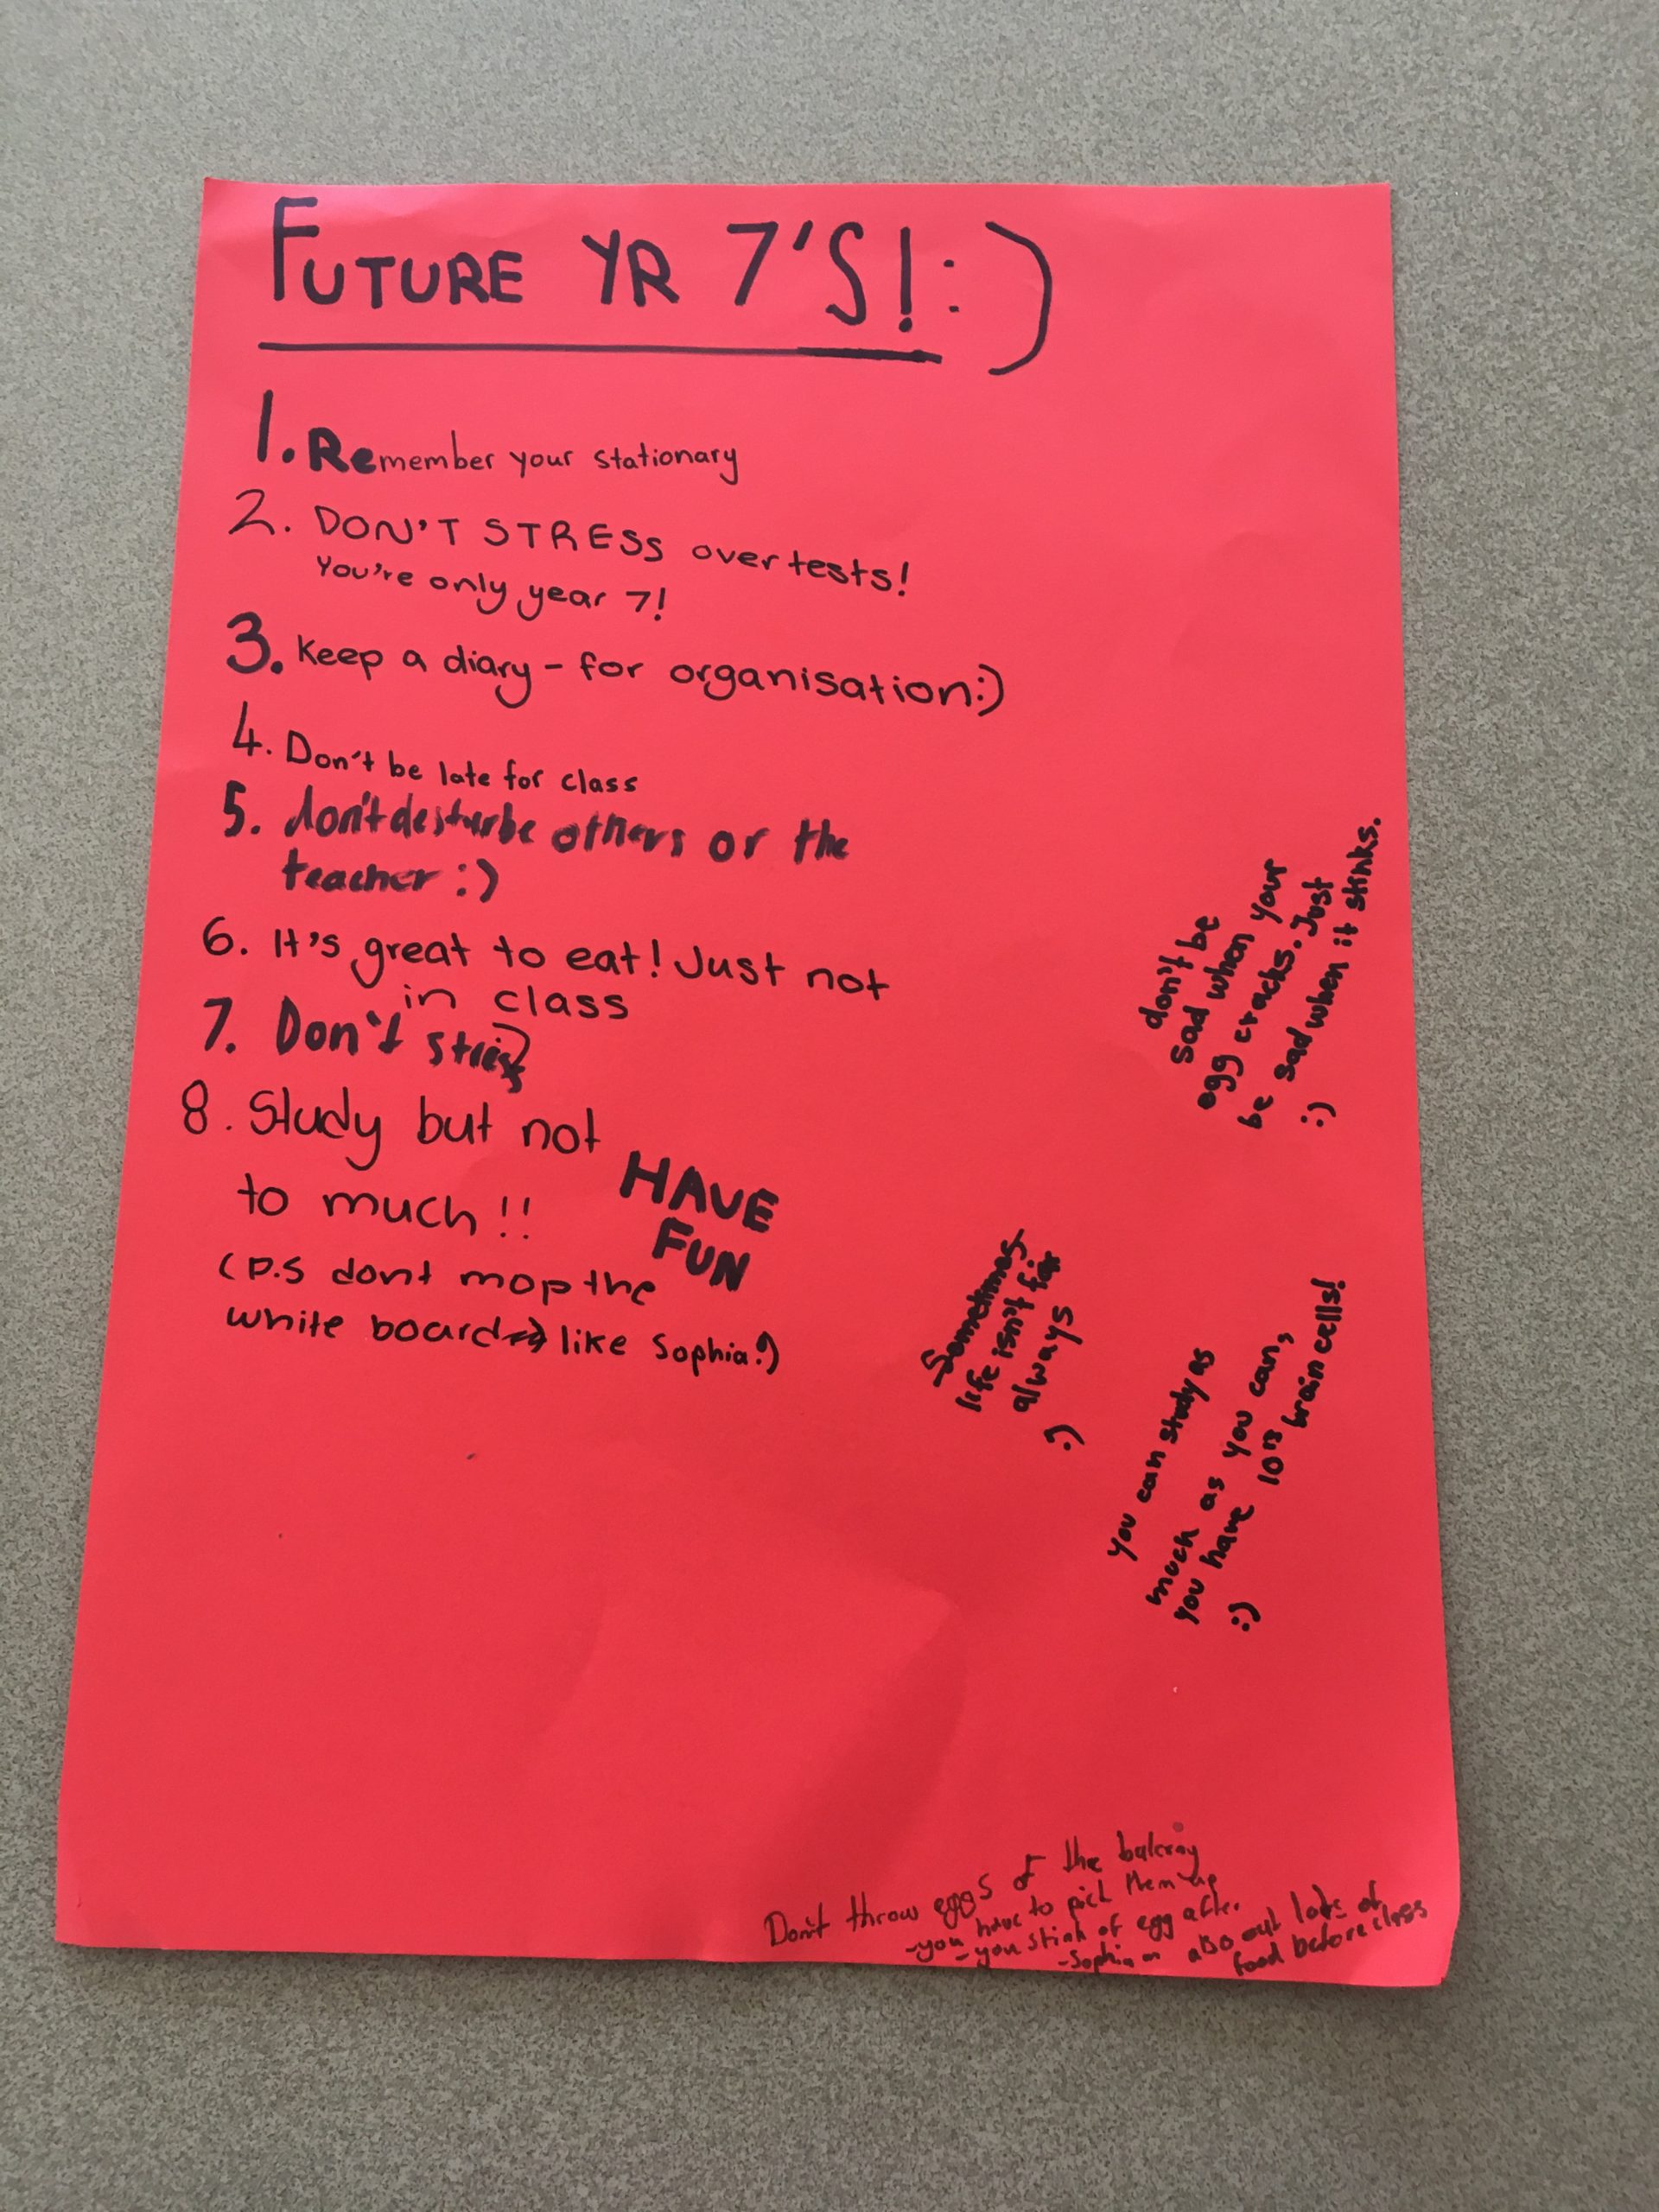 FUTURE YR 7'S! :)
1. Remember your stationary
2. DON'T STRESS over tests!
You're only year 7!
3. Keep a diary - for organisation:)
4. Don't be late for class
5. don't desturbe others or the
teacher :)
6. It's great to eat! Just not
in class
7. Don't
8. Study but not
to much!!
HAVE
FUN
(P.S dont mop the
white board like Sophia!)
don't be
sad when your
egg cracks. Just
be sad when it stinks.
:)
Sometimes
life isn't for
always
:)
you can study as
much as you can,
you have brain cells!
:)
Don't throw eggs of the balcony
-you have to pick them up
-you stink of egg after.
-Sophia also out lots of
food before class